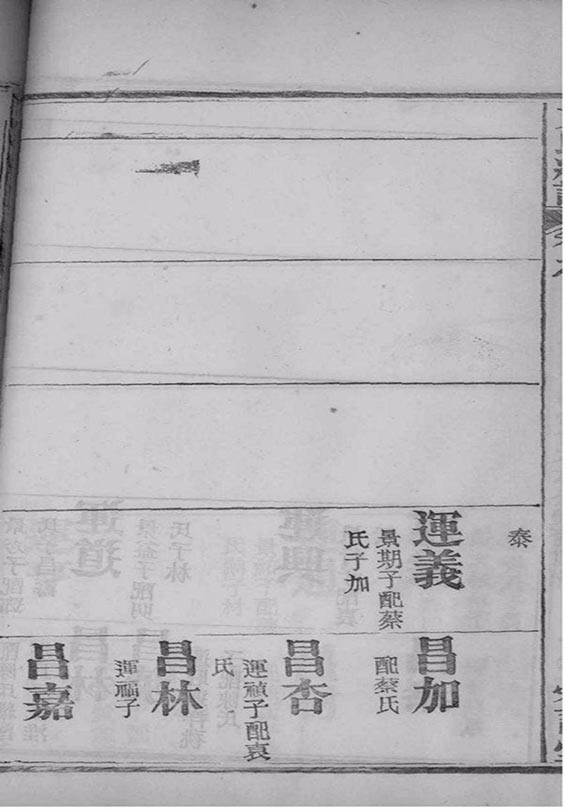 泰
運義
景期子配蔡
氏子加
昌加
配蔡氏
昌杏
運禎子配袁
氏
昌林
運福子
昌嘉